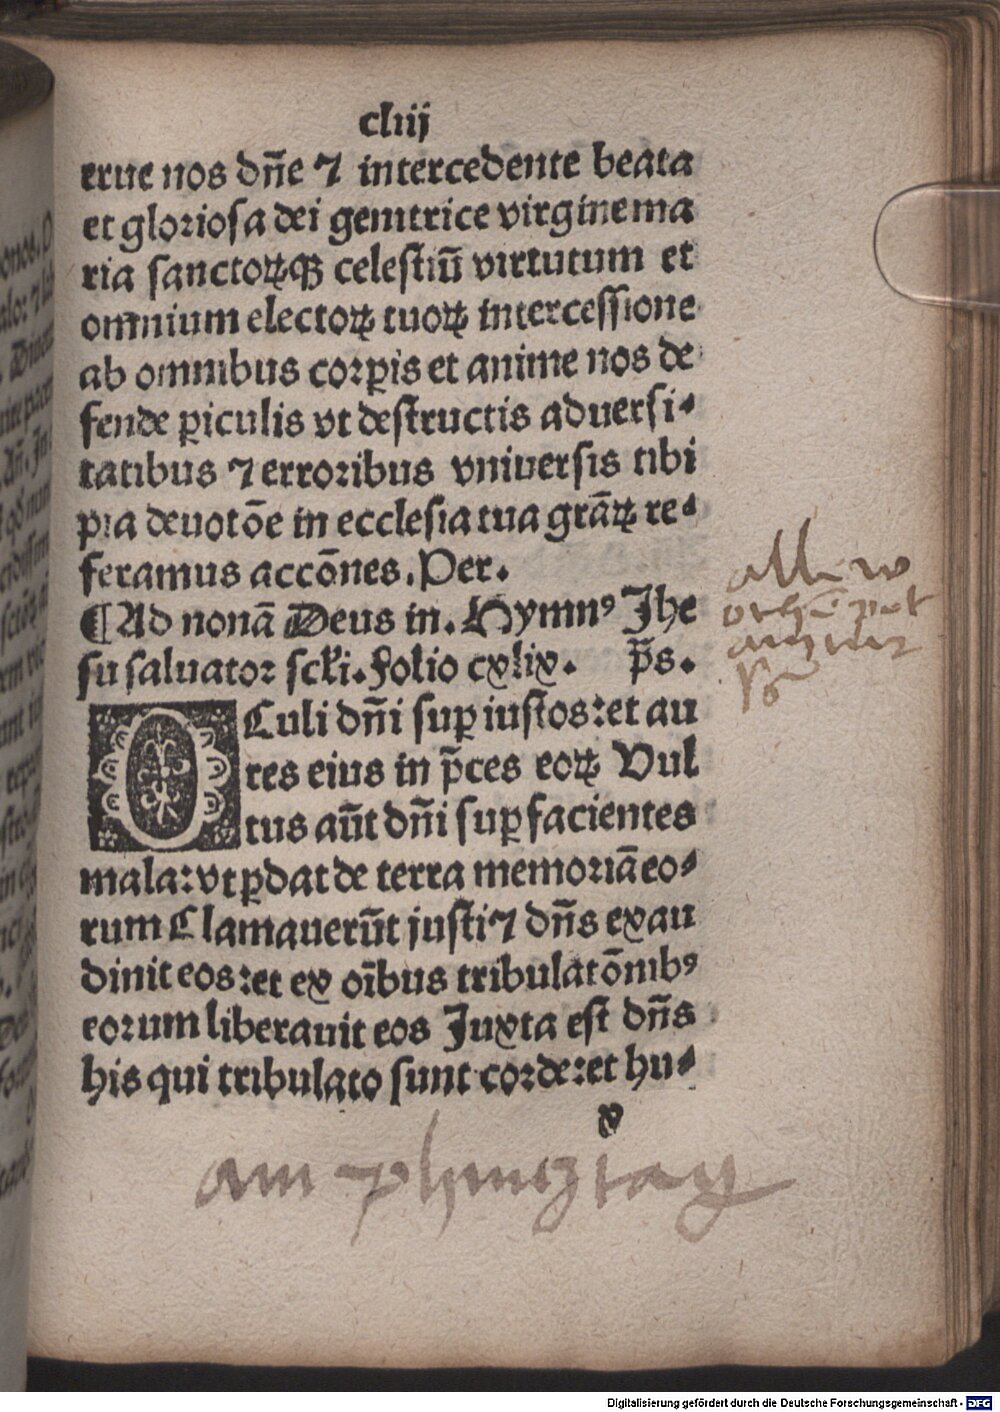 cliij
erue nos dn̄e ⁊ intercedente beata
et gloriosa dei genitrice virgine ma
ria sanctoꝝqꝫ celestiū virtutum et
omnium electoꝝ tuoꝝ intercessione
ab omnibus corꝑis et anime nos de
fende ꝑiculis vt destructis aduersi⸗
tatibus ⁊ erroribus vniuersis tibi
pia deuotōe in ecclesia tua grāꝝ re⸗
feramus accōnes. Per.
¶ Ad nonā Deus in. Hymnꝰ Jhe
su saluator scłi. Folio cxlix. p̄s.
OCuli dn̄i suꝑ iustos: et au
res eius in p̄ces eoꝝ Vul
tus aūt dn̄i suꝑ facientes
mala: vt ꝑdat de terra memoriā eo⸗
rum Clamauerūt justi ⁊ dn̄s exau
diuit eos: et ex oībus tribulatōnibꝰ
eorum liberauit eos Juxta est dn̄s
his qui tribulato sunt corde: et hu⸗
v
am phingtag
Digitalisierung gefördert durch die Deutsche Forschungsgemeinschaft - DFG